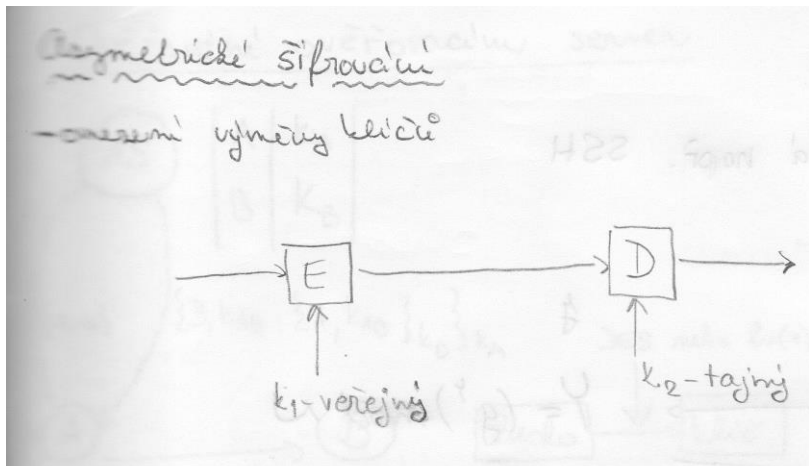 Asymetrické šifrování
- omezení výměny klíčů
E
D
k₁-veřejný
k₂-tajný